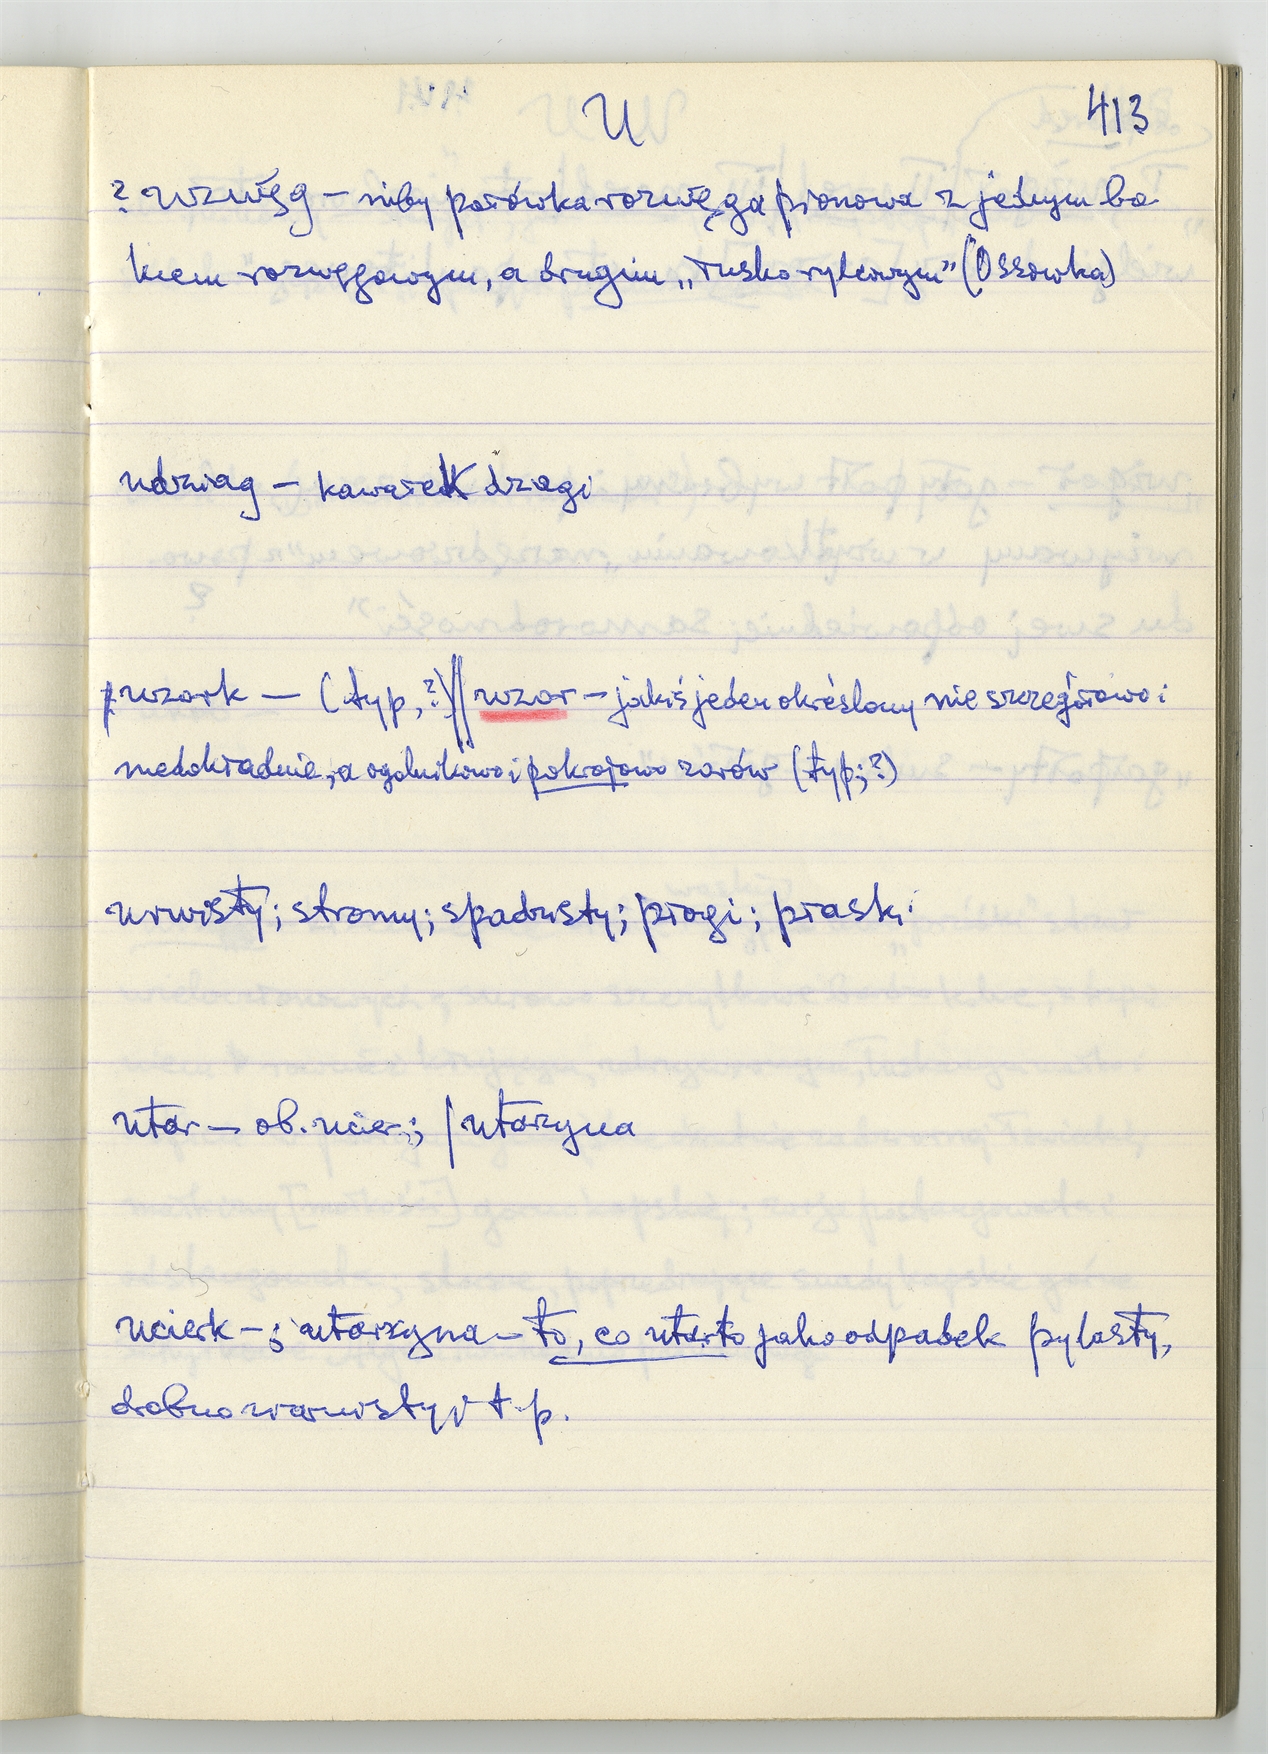 U 413
? uzwęg – niby połówka rozwęga pionowa z jednym bo-
kiem rozwęgowym, a drugim „łuskorylcowym” (Ossówka)
udziag – kawałek dziagi
uzork – (typ,?) || uzor – jakiś jeden określony nie szczegółowo i
niedokładnie, a ogólnikowo i pokrojowo zarów (typ;?)
urwisty; stromy; spadzisty; płogi; płaski
utar – ob. ucier; / utarzyna
ucierk – ; utarzyna – to, co utarto jako odpadek pylasty,
drobnowarwisty i t.p.